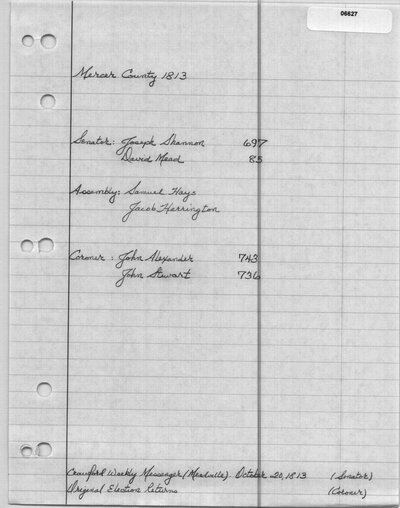 06627
Mercer County 1813
Senator: Joseph Shannon 697
David Mead 85
Assembly: Samuel Hays
Jacob Herrington
Coroner: John Alexander 743
John Stewart 736
Crawford Weekly Messenger (Meadville). October 20, 1813 (Senator)
Original Election Returns (Coroner)